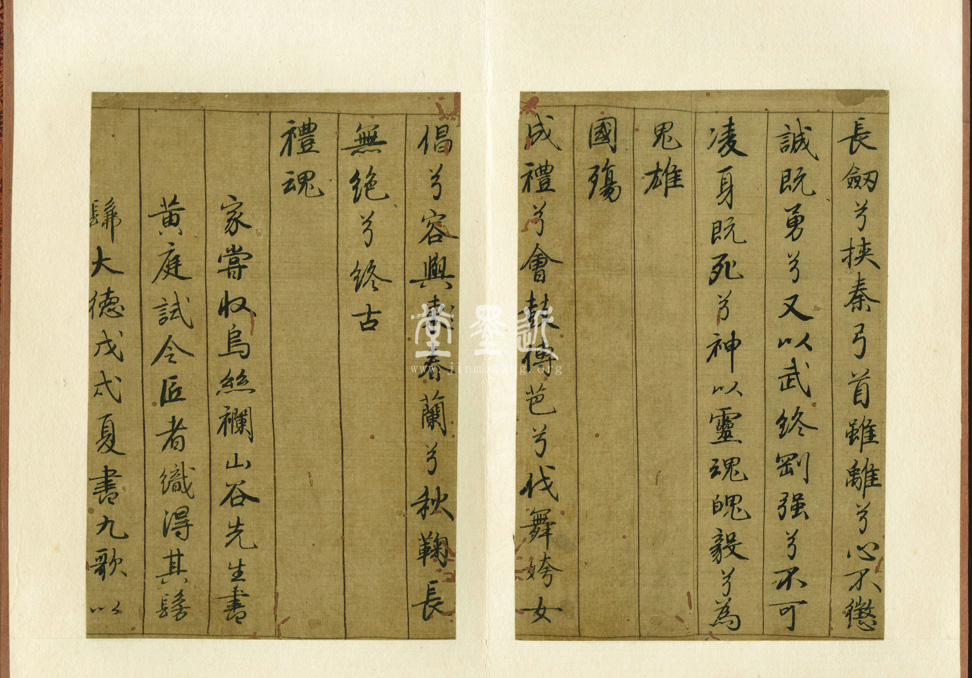 長劒兮挾秦弓首雖離兮心不懲
誠既勇兮又以武終剛强兮不可
凌身既死兮神以靈魂魄毅兮為
鬼雄
國殤
成禮兮會鼓傳芭兮伐舞姱女
倡兮容與春蘭兮秋鞠長
無絶兮終古
禮魂
家嘗收烏絲襴山谷先生書
黄庭試令匠者織得其髣
髴大德戊戌夏書九歌以
近墨堂
www.jinmotang.org